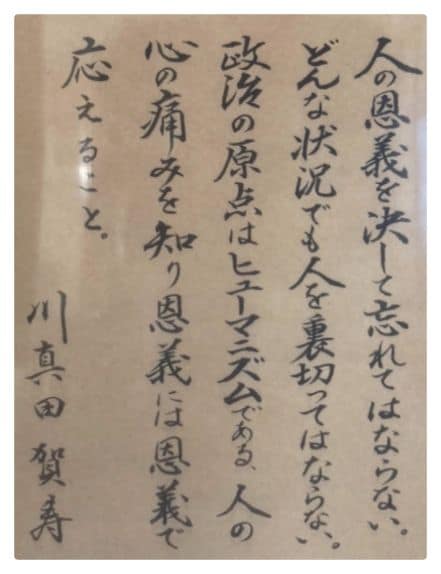 人の恩義を決して忘れてはならない。
どんな状況でも人を裏切ってはならない。
政治の原点はヒューマニズムである、人の
心の痛みを知り恩義には恩義で
応えること。
川真田賀寿